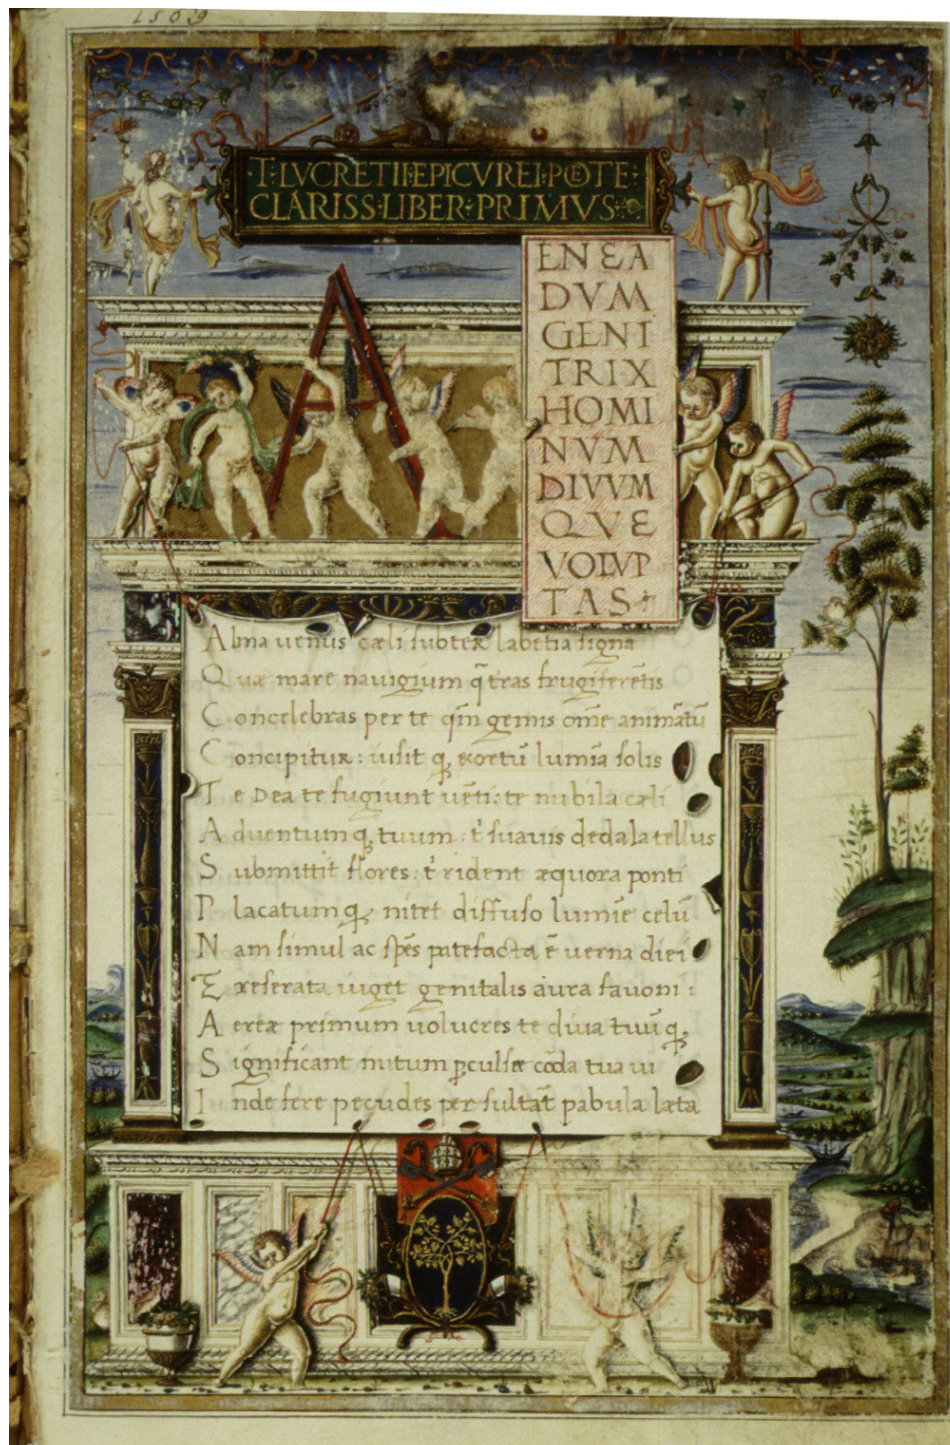 1569
·T·LVCRETII·EPICVREI·POETE·
CLARISS·LIBER·PRIMVS·
A
ENEA
DVM
GENI
TRIX
HOMI
NVM
DIVVM
QVE
VOLVP
TAS
Alma uenus cæli subter labētia signa
Quæ mare nauigium q̄ tras frugiferētis
Concelebras per te qm̄ genus om̄e animātū
Concipitur: uisit q; exortū lumīa solis
Te Dea te fugiunt uēti: te nubila cæli
Aduentumq; tuum: t' suauis dedala tellus
Submittit flores: t' rident æquora ponti
Placatumq; nitet diffuso lumīe celū
Nam simul ac sp̄es patefacta ē uerna diei
Et reserata uiget genitalis aura fauoni:
Aereæ primum uolucres te diua tuū q;
Significant initum ꝑculsæ cōda tua ui
Inde fere pecudes per sultāt pabula læta